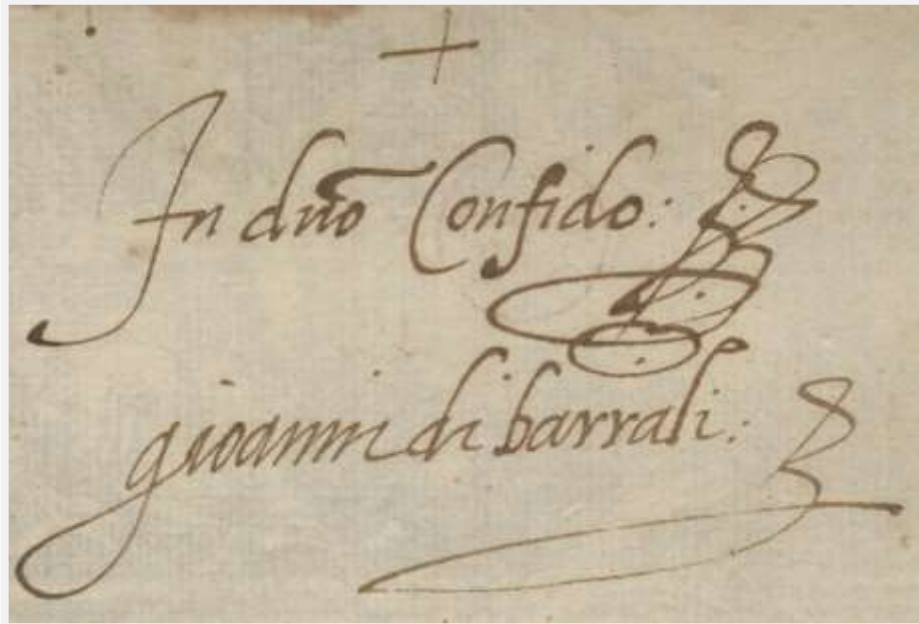 +
In dnõ Confido:
gioanni di barrali: